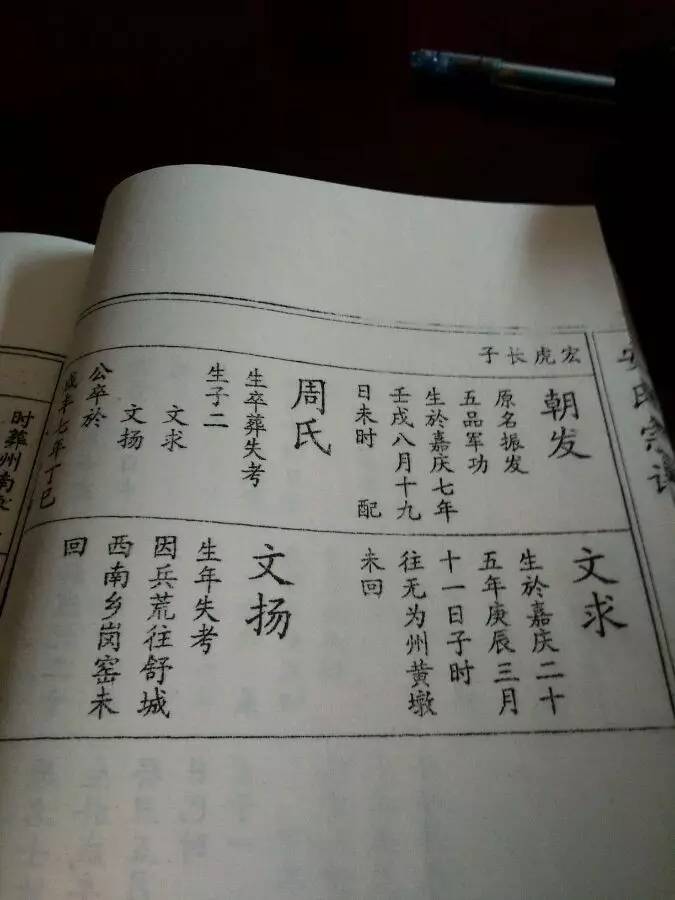 氏宗谱
宏虎长子
朝发
原名振发
五品军功
生於嘉庆七年
壬戌八月十九
日未时 配
周氏
生卒葬失考
生子二
文求
文扬
公卒於
咸丰七年丁巳
文求
生於嘉庆二十
五年庚辰三月
十一日子时
往无为州黄墩
未回
文扬
生年失考
因兵荒往舒城
西南乡岗窑未
回
时葬州南